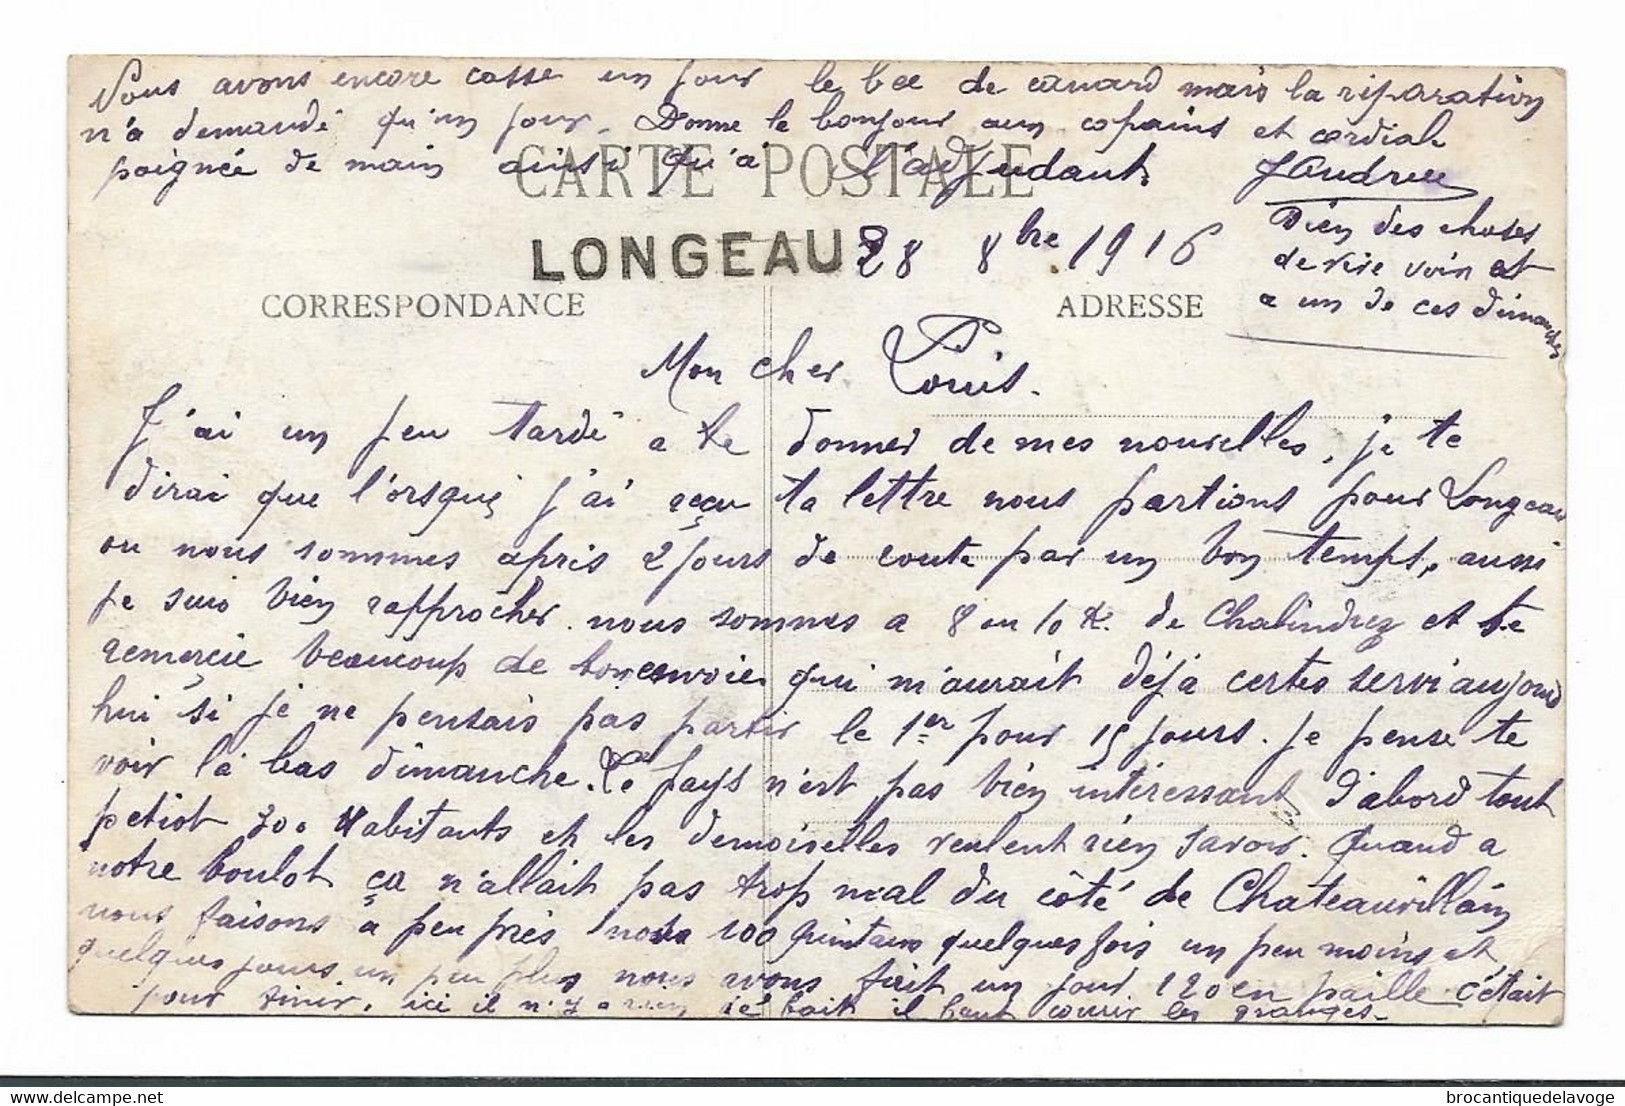 Nous avons encore casse un jour le bec de canard mais la réparation
n'a demandé qu'un jour. Donne le bonjour aux copains et cordiale
poignée de main ainsi qu'a l'adjudant.
CARTE POSTALE
Bien des choses
de vive voix et
a un de ces dimanches
LONGEAU 28 8bre 1916
CORRESPONDANCE
ADRESSE
Mon cher Louis.
J'ai un peu tardé a te donner de mes nouvelles, je te
dirai que l'orsque j'ai reçu ta lettre nous partions pour Longeau
ou nous sommes après 2 jours de route par un bon temps, aussi
je suis bien rapprocher. nous sommes a 8 ou 10 K. de Chalindrey et te
remerçie beaucoup de ton envoie qui m'aurait déjà certes servi aujourd
hui si je ne pensais pas partir le 1er pour 15 jours. Je pense te
voir là bas dimanche. Le pays n'est pas bien intéressant d'abord tout
petiot 300 Habitants et les demoiselles veulent rien savoir. Quand a
notre boulot ça n'allait pas trop mal du côté de Chateauvillain
nous faisons à peu près nos 100 quintaux quelques fois un peu moins et
quelques jours un peu plus nous avons fait un jour 120 en paille c'était
pour finir, ici il n'y a rien de bait il faut courir les granges.
brocantiquedelavoge